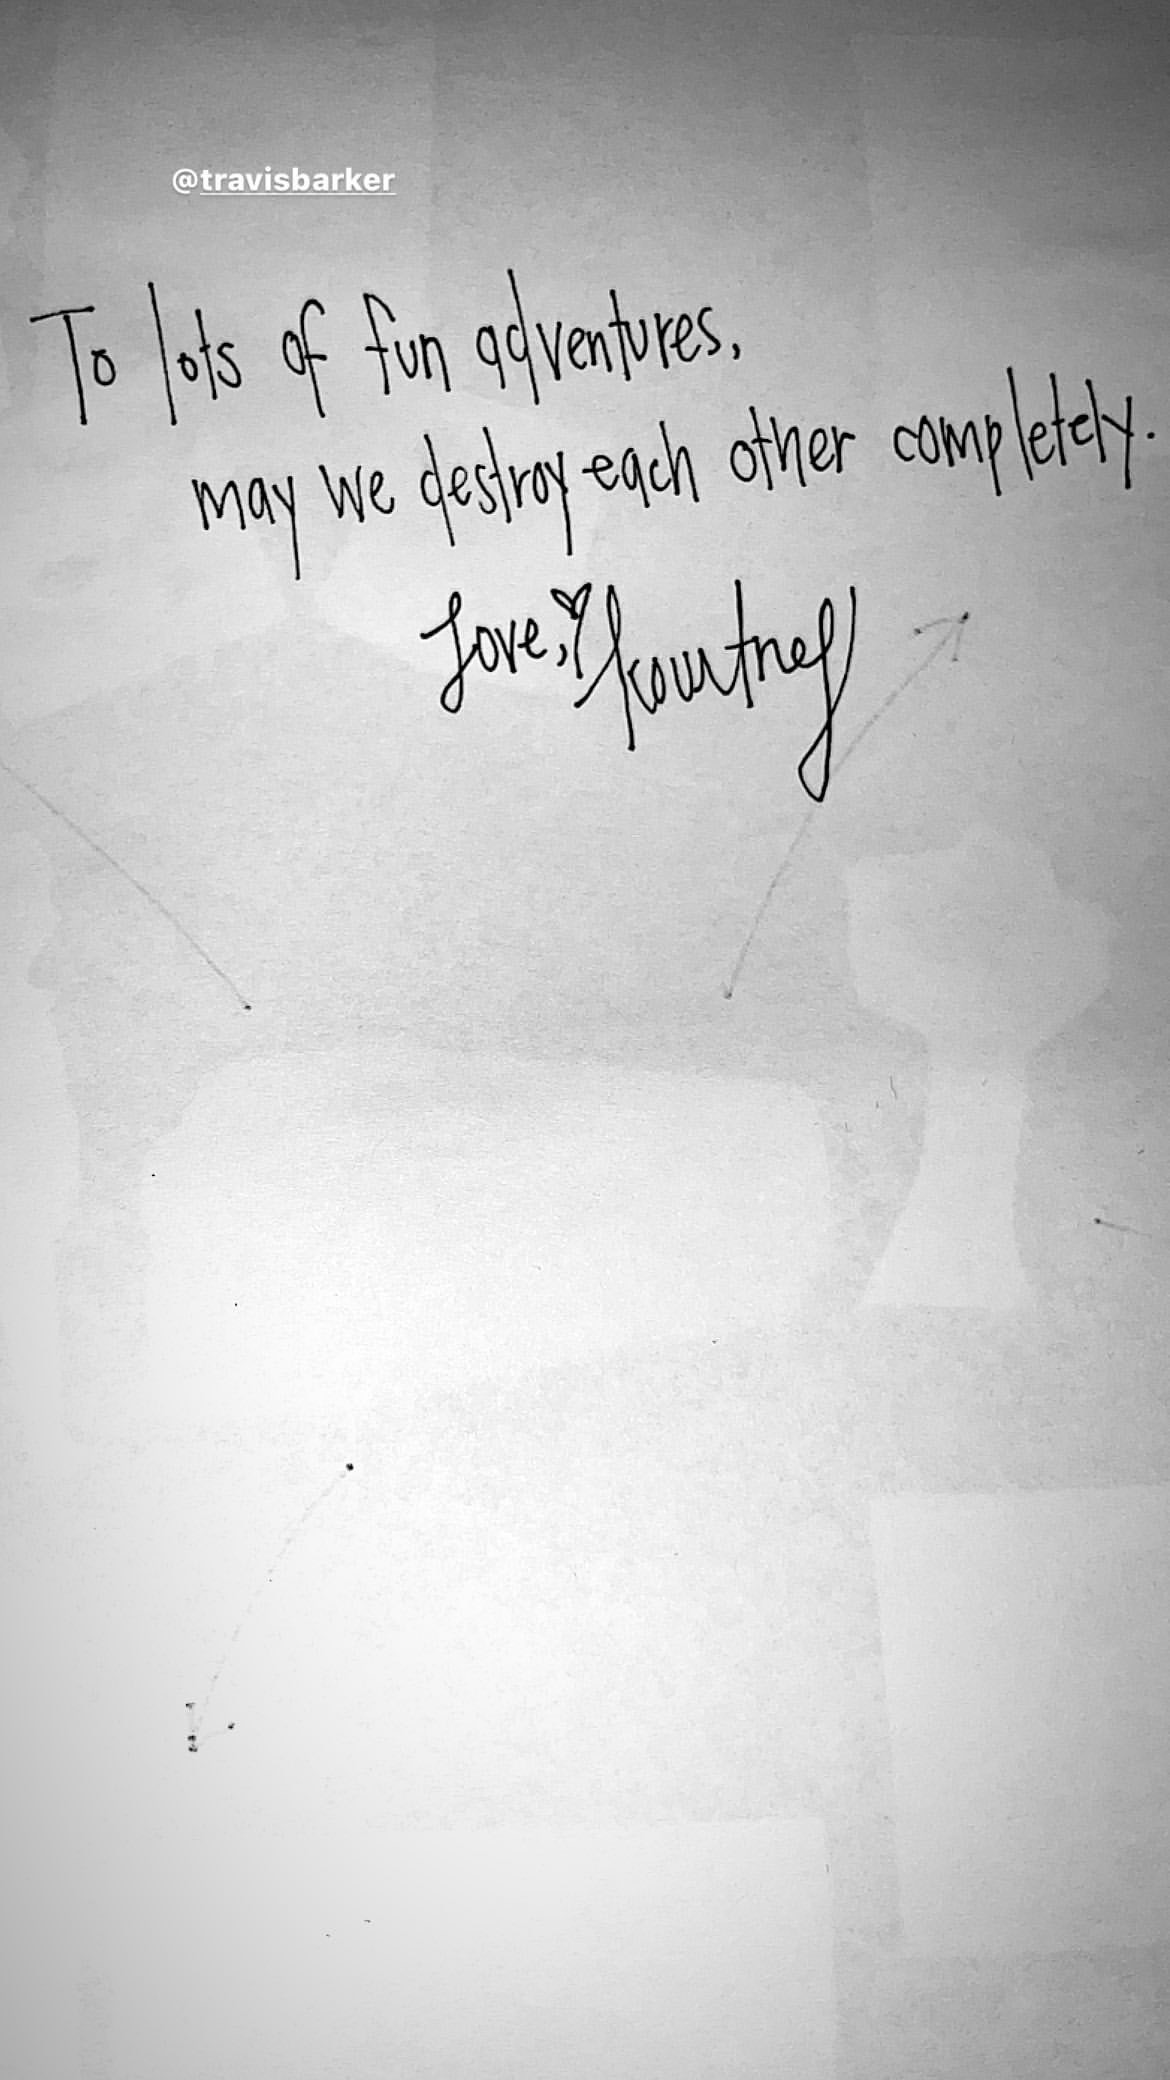 @travisbarker
To lots of fun adventures,
may we destroy each other completely.
Love, kourtney